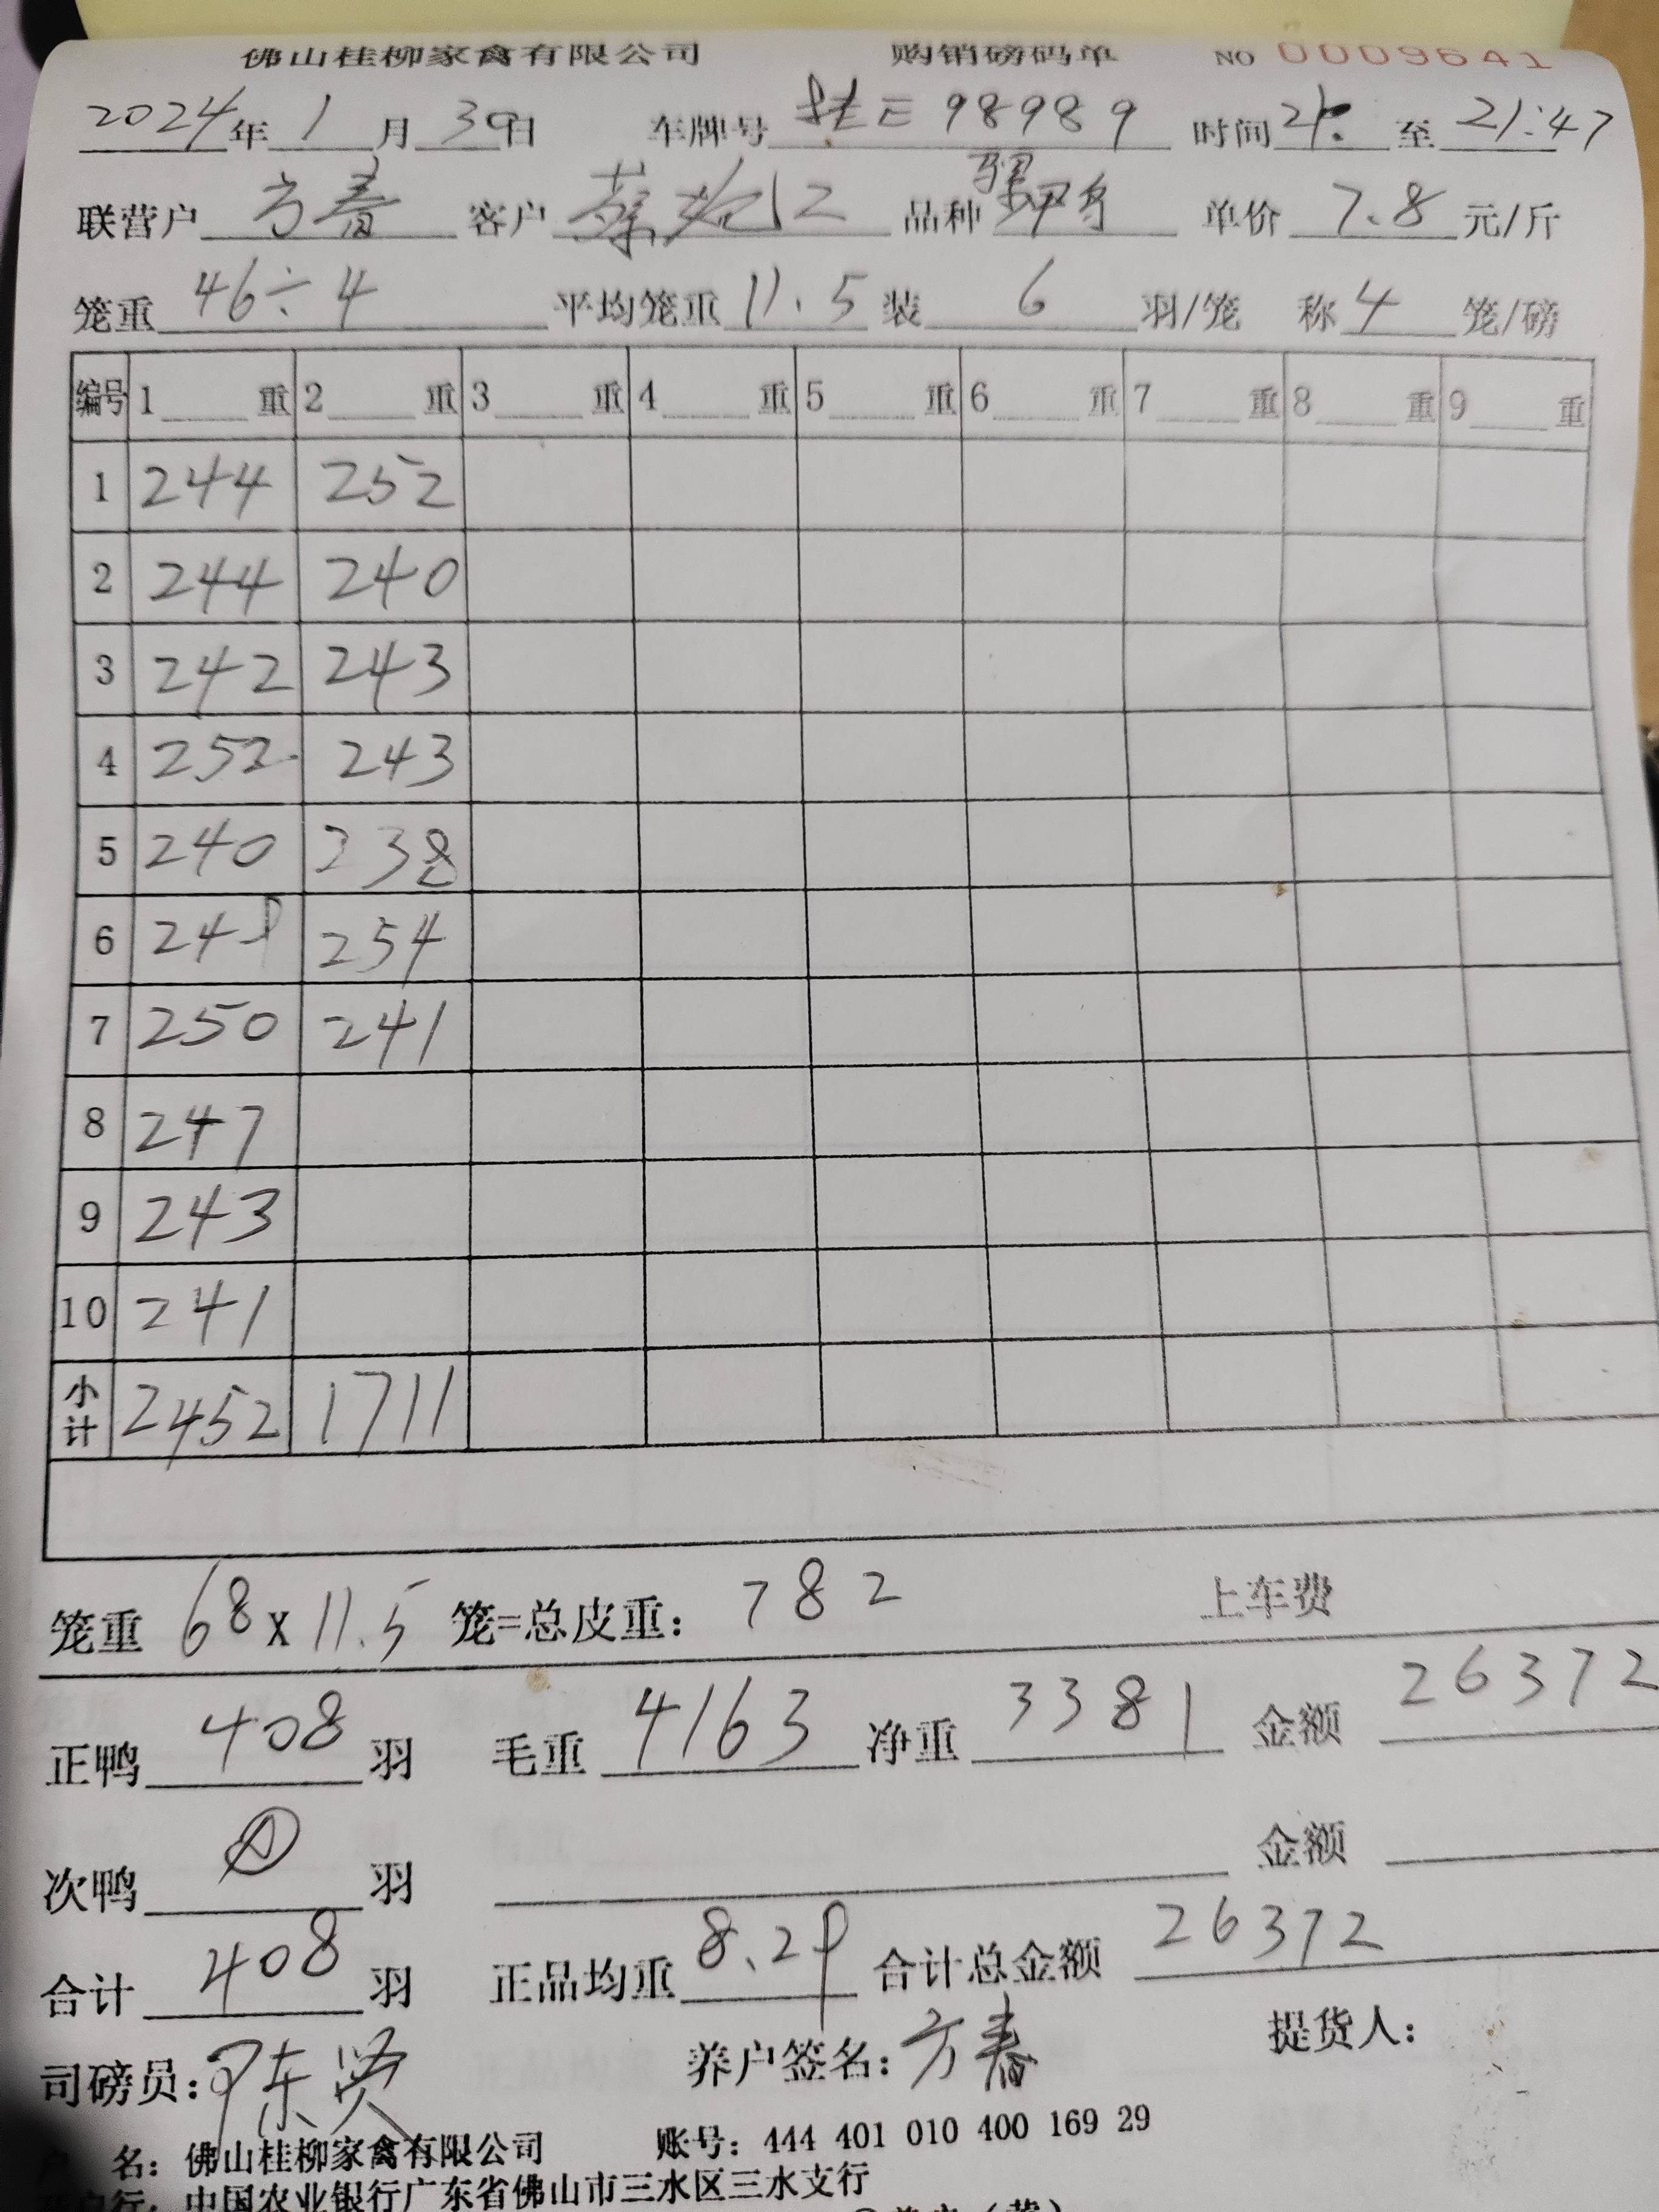 佛山桂柳家禽有限公司 购销磅码单 NO 0009641
2024年1月30日 车牌号 E98989 时间21: 至21:47
联营户 方春 客户 蔡 12 品种 骡鸭 单价 7.8 元/斤
笼重 46÷4 平均笼重 11.5 装 6 羽/笼 称 4 笼/磅
编号 1 重 2 重 3 重 4 重 5 重 6 重 7 重 8 重 9 重
1 244 252
2 244 240
3 242 243
4 252 243
5 240 238
6 249 254
7 250 241
8 247
9 243
10 241
小计 2452 1711
笼重 68 x 11.5 笼=总皮重: 782 上车费
正鸭 408 羽 毛重 4163 净重 3381 金额 26372
次鸭 羽 金额
合计 408 羽 正品均重 8.29 合计总金额 26372
司磅员: 陈贤 养户签名: 方春 提货人:
户 名: 佛山桂柳家禽有限公司 账号: 444 401 010 400 169 29
户行: 中国农业银行广东省佛山市三水区三水支行